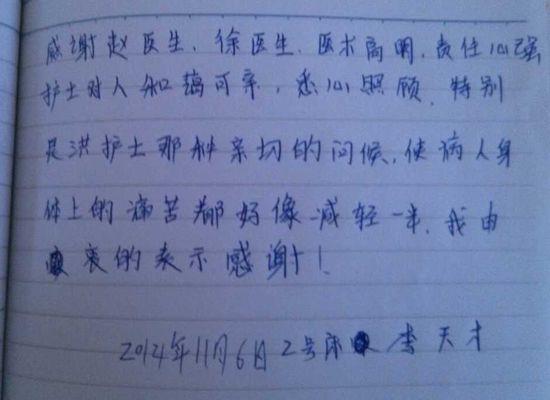 感谢赵医生、徐医生、医术高明，责任心强
护士对人和蔼可亲，悉心照顾，特别
是洪护士那种亲切的问候，使病人身
体上的痛苦都好像减轻一半，我由
衷的表示感谢！
2014年11月6日 2号床 李天才